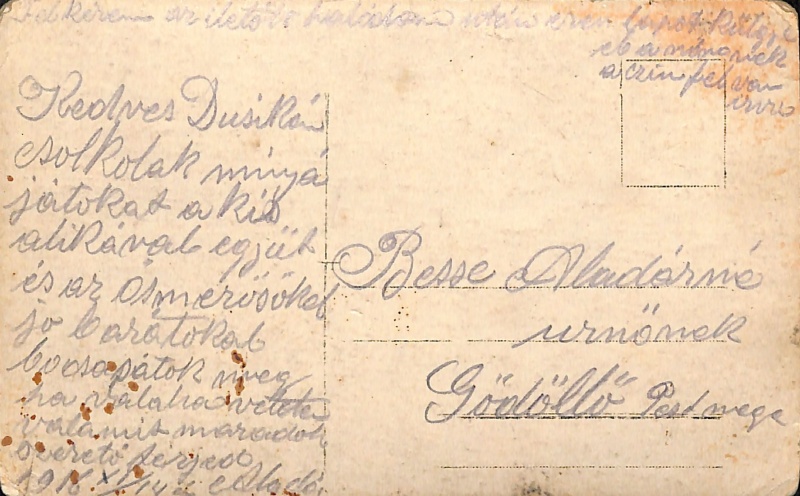 Felkérem az illetőt halálom után ezen lapot küldje
el a nőmnek
a czim fel van
irva
Kedves Dusikám
csolkolak minyá
játokat a kis
alikával együt
és az ösmerősöket
jo barátokat
bocsásátok meg
ha valaha vétetem
valamit maradok
szerető férjed
1916 XI/14 én Aladár
Besse Aladárné
urnőnek
Gödöllő Pest mege